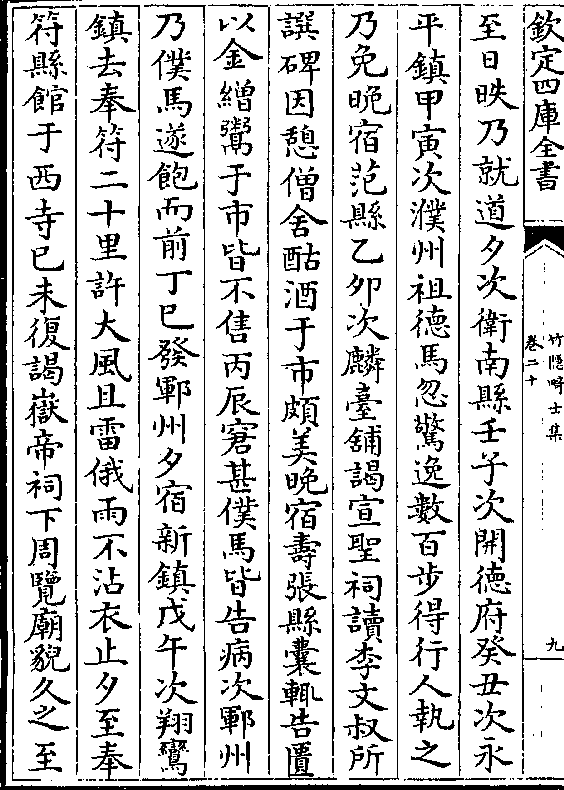 欽定四庫全書
竹隱畸士集
卷二十
九
至日昳乃就道夕次衛南縣壬子次開德府癸丑次永
平鎮甲寅次濮州祖德馬忽驚逸數百步得行人執之
乃免晚宿范縣乙卯次麟臺舖謁宣聖祠讀李文叔所
譔碑因憩僧舍酤酒于市頗美晚宿壽張縣橐輒告匱
以金繒鬻于市皆不售丙辰窘甚僕馬皆告病次鄆州
乃僕馬遂飽而前丁巳發鄆州夕宿新鎮戊午次翔鸞
鎮去奉符二十里許大風且雷俄雨不沾衣止夕至奉
符縣館于西寺己未復謁嶽帝祠下周覽廟貌久之至